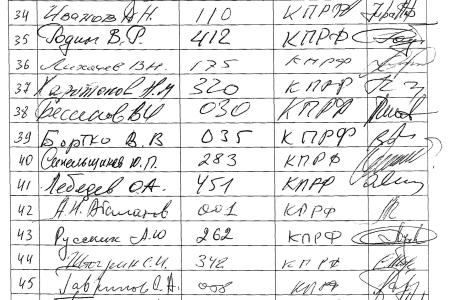 34 Иванов А.Н. 110 КПРФ
35 Родин В.Р. 412 КПРФ
36 Лихачев В.Н. 175 КПРФ
37 Харитонов Н.М 320 КПРФ
38 030 КПРФ
39 Бортко В.В 035 КПРФ
40 Синельщиков Ю.П. 283 КПРФ
41 Лебедев О.А. 451 КПРФ
42 001 КПРФ
43 Русских А.Ю 262 КПРФ
44 348 КПРФ
45 Гаврилов С.А. 008 КПРФ